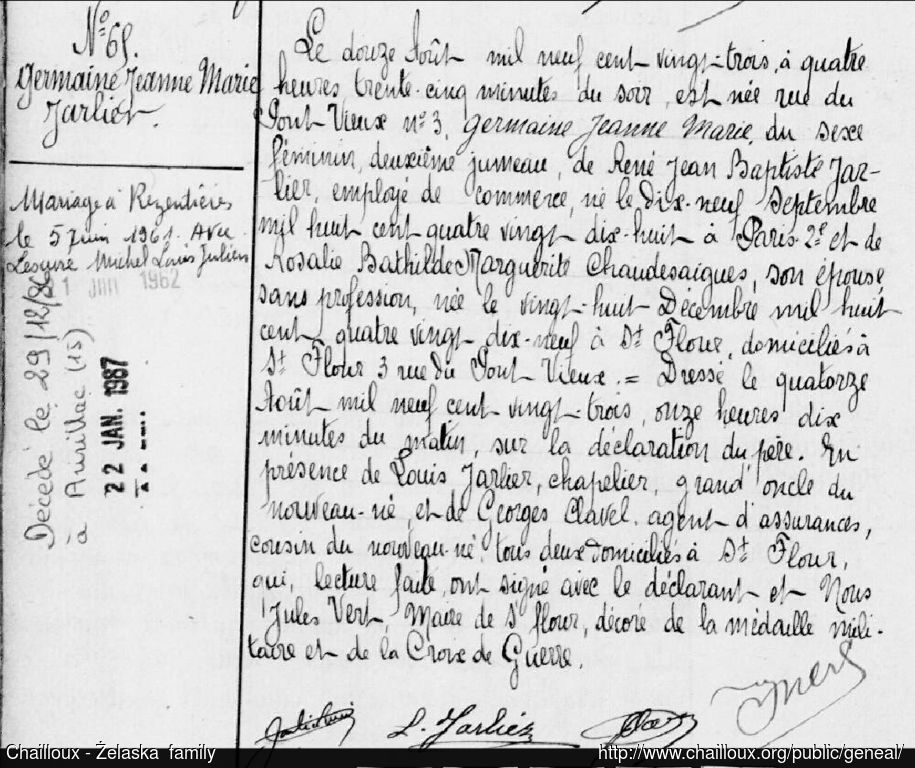 N° 65.
Germaine Jeanne Marie
Jarlier.
Mariage à Rézentières
le 5 Juin 1961. Avec
Lesuire Michel Louis Julien
1962
Décédé le 29/12/86
à Aurillac (15)
22 JAN. 1987
Le douze Août mil neuf cent vingt-trois, à quatre
heures trente-cinq minutes du soir, est née rue du
Pont Vieux n° 3, Germaine Jeanne Marie, du sexe
féminin, deuxième jumeau, de René Jean Baptiste Jar-
lier, employé de commerce, né le dix-neuf Septembre
mil huit cent quatre vingt dix-huit à Paris 2e et de
Rosalie Bathilde Marguerite Chaudesaigues, son épouse,
sans profession, née le vingt-huit Décembre mil huit
cent quatre vingt dix-neuf à St Flour, domiciliés à
St Flour 3 rue du Pont Vieux. = Dressé le quatorze
Août mil neuf cent vingt-trois, onze heures dix
minutes du matin, sur la déclaration du père. En
présence de Louis Jarlier, chapelier, grand'oncle du
nouveau-né, et de Georges Clavel, agent d'assurances,
cousin du nouveau-né, tous deux domiciliés à St Flour,
qui, lecture faite, ont signé avec le déclarant et Nous
Jules Vert, Maire de St flour, décoré de la médaille mili-
taire et de la Croix de Guerre.
L. Jarlier
Chailloux - Żelaska family
http://www.chailloux.org/public/geneal/